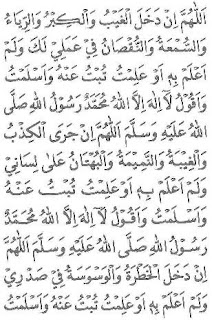 اَللّٰهُمَّ اِنْ دَخَلَ الْعَيْبُ وَالْكِبْرُ وَالرِّيَاءُ
وَالسُّمْعَةُ وَالنُّقْصَانُ فِيْ عَمَلِيْ لَكَ وَلَمْ
اَعْلَمْ بِهٖ اَوْ عَلِمْتُ تُبْتُ عَنْهُ وَاَسْلَمْتُ
وَاَقُوْلُ لَا اِلٰهَ اِلَّا اللهُ مُحَمَّدٌ رَسُوْلُ اللهِ صَلَّى
اللهُ عَلَيْهِ وَسَلَّمَ اَللّٰهُمَّ اِنْ جَرَى الْكِذْبُ
وَالْغِيْبَةُ وَالنَّمِيْمَةُ وَالْبُهْتَانُ عَلٰى لِسَانِيْ
وَلَمْ اَعْلَمْ بِهٖ اَوْ عَلِمْتُ تُبْتُ عَنْهُ
وَاَسْلَمْتُ وَاَقُوْلُ لَا اِلٰهَ اِلَّا اللهُ مُحَمَّدٌ
رَسُوْلُ اللهِ صَلَّى اللهُ عَلَيْهِ وَسَلَّمَ اَللّٰهُمَّ
اِنْ دَخَلَ الْخَطْرَةُ وَالْوَسْوَسَةُ فِيْ صَدْرِيْ
وَلَمْ اَعْلَمْ بِهٖ اَوْ عَلِمْتُ تُبْتُ عَنْهُ وَاَسْلَمْتُ